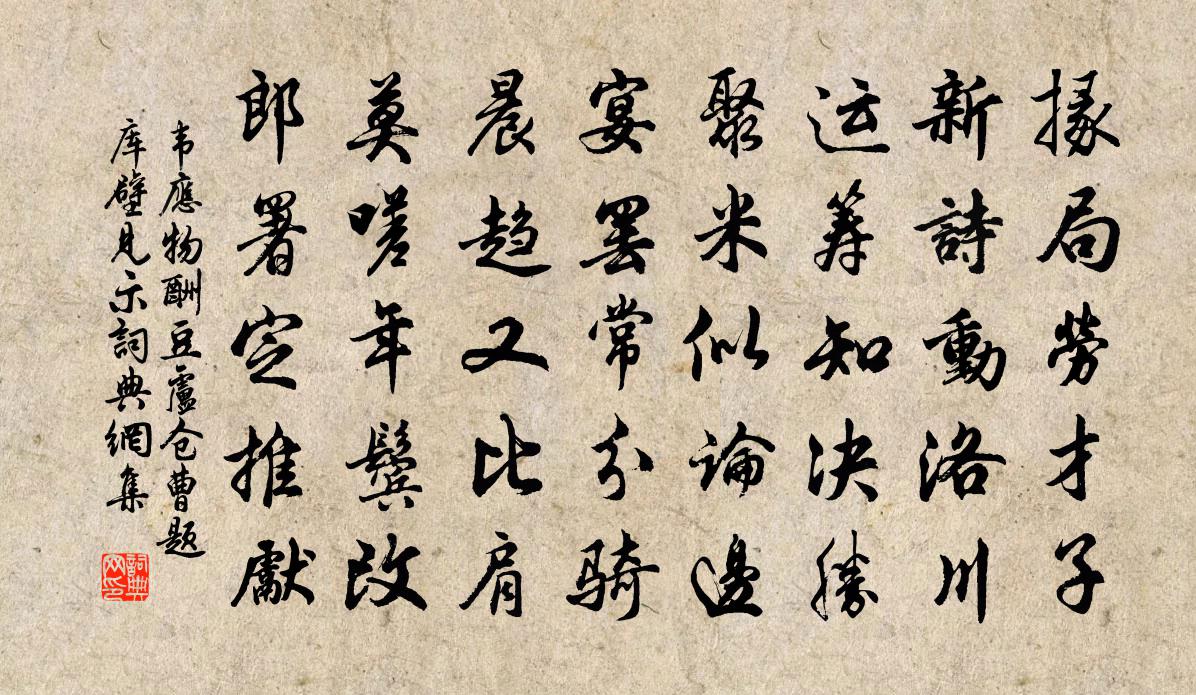 掾局勞才子
新詩動洛川
运筹知决勝
聚米似論邊
宴罢常分骑
晨趋又比肩
莫嗟年鬓改
郎署定推獻
韦應物酬豆盧仓曹题
库壁见示詞典網集
詞典网印